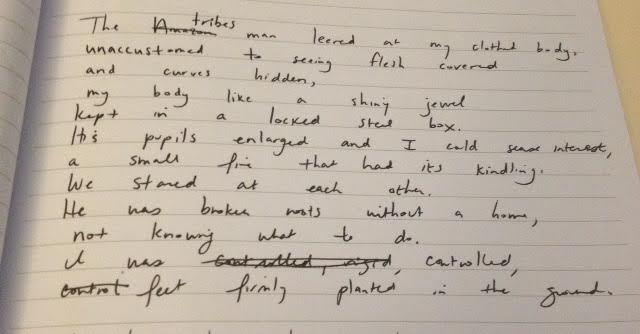 The Amazon tribes man leered at my clothed body.
unaccustomed to seeing flesh covered
and curves hidden,
my body like a shiny jewel
kept in a locked steel box.
His pupils enlarged and I could sense interest,
a small fire that had its kindling.
We stared at each other.
He was broken roots without a home,
not knowing what to do.
I was controlled, rigid, controlled,
control feet firmly planted in the ground.